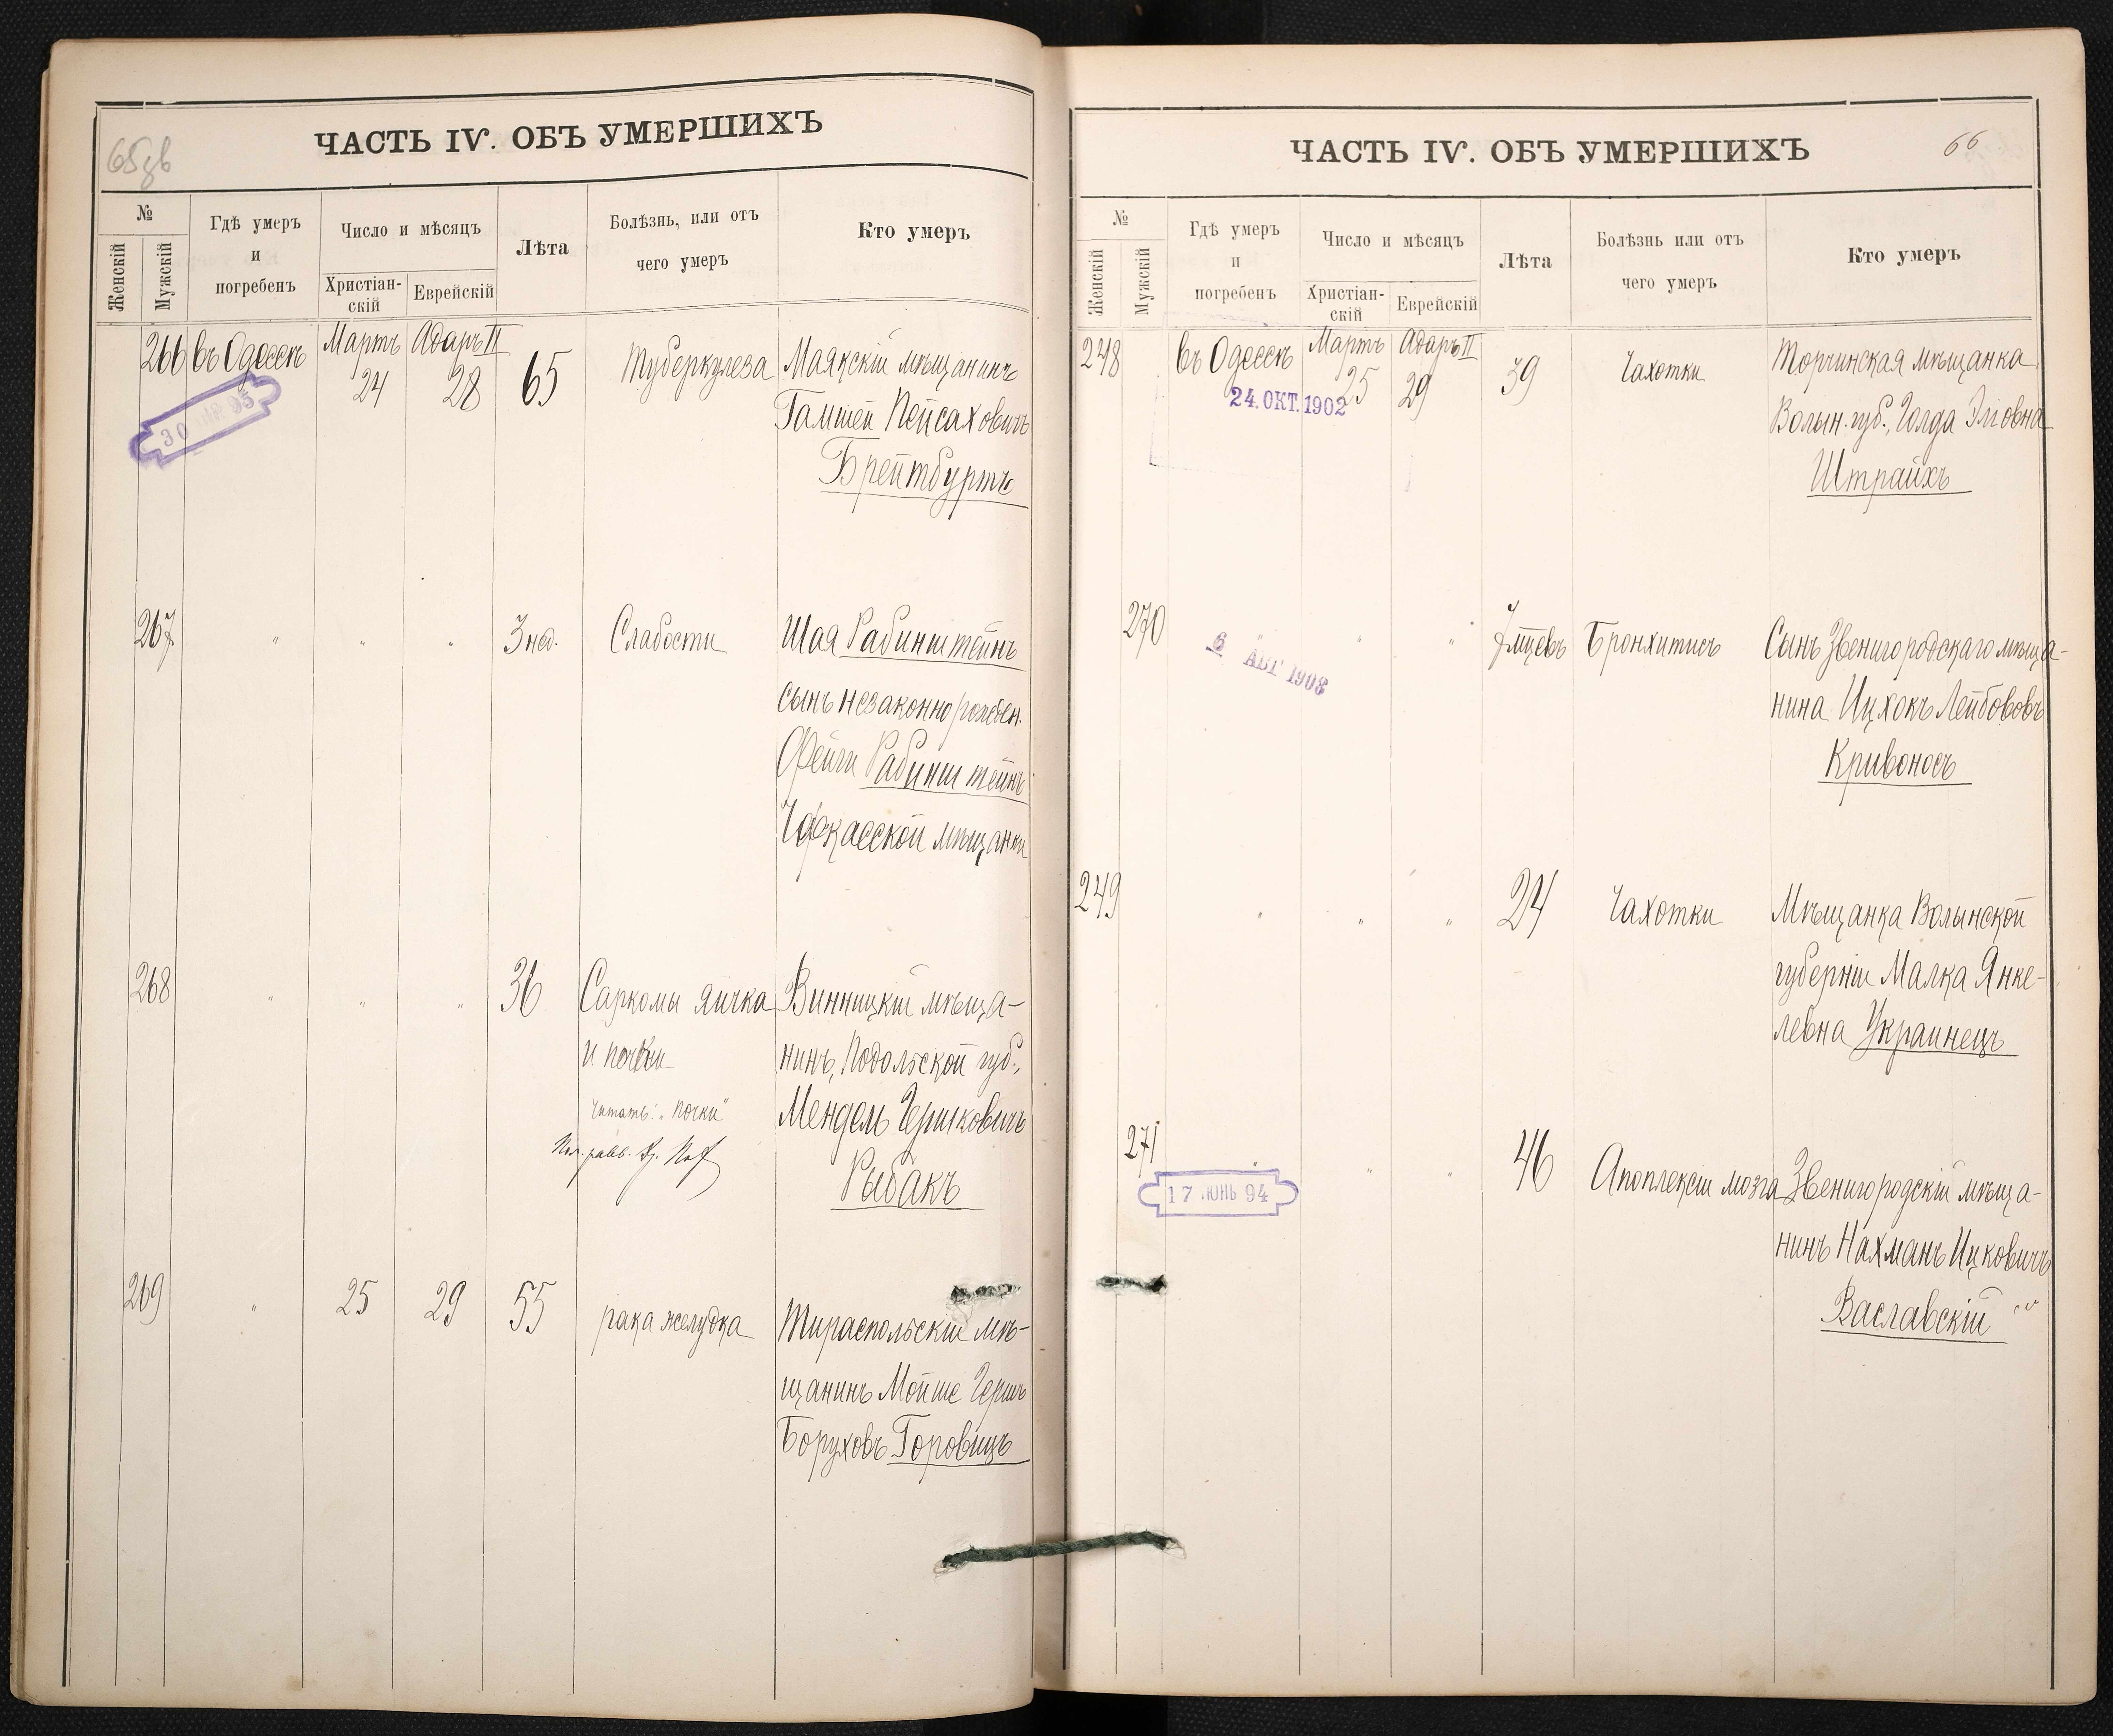 65 об
ЧАСТЬ IV. ОБЪ УМЕРШИХЪ
№
Женскій
Мужскій
Гдѣ умеръ
и
погребенъ
Число и мѣсяцъ
Христіан-
скій
Еврейскій
Лѣта
Болѣзнь, или отъ
чего умеръ
Кто умеръ
266 въ Одессѣ Мартъ Адаръ II
24 28 65 Туберкулеза Маякскій мѣщанинъ
Гамшей Пейсаховичъ
Брейтбуртъ
30 95
267 " " " 3 нед. Слабости Шая Рабинштейнъ
сынъ незаконнорожден.
Фейги Рабинштейнъ
Черкасской мѣщанки
268 " " " 36 Саркомы яичка Винницкій мѣща-
и почки нинъ, Подольской губ.,
читать: "почки" Мендель Гершковичъ
Рыбакъ
269 " 25 29 55 рака желудка Тираспольскій мѣ-
щанинъ Мойше Гершъ
Боруховъ Горовицъ
66
ЧАСТЬ IV. ОБЪ УМЕРШИХЪ
№
Женскій
Мужскій
Гдѣ умеръ
и
погребенъ
Число и мѣсяцъ
Христіан-
скій
Еврейскій
Лѣта
Болѣзнь или отъ
чего умеръ
Кто умеръ
248 въ Одессѣ Мартъ Адаръ II
25 29 39 Чахотки Торчинская мѣщанка
Волын. губ., Голда Эліовна
Штрайхъ
24.ОКТ.1902
270 " " " 7 мцевъ Бронхитисъ Сынъ Звенигородскаго мѣща-
нина Ицхокъ Лейбововъ
Кривоносъ
6 АВГ 1908
249 " " " 24 Чахотки Мѣщанка Волынской
губерніи Малка Янке-
левна Украинецъ
271 " " " 46 Апоплексіи мозга Звенигородскій мѣща-
нинъ Нахманъ Ицковичъ
Ваславскій
17 ІЮНЬ 94